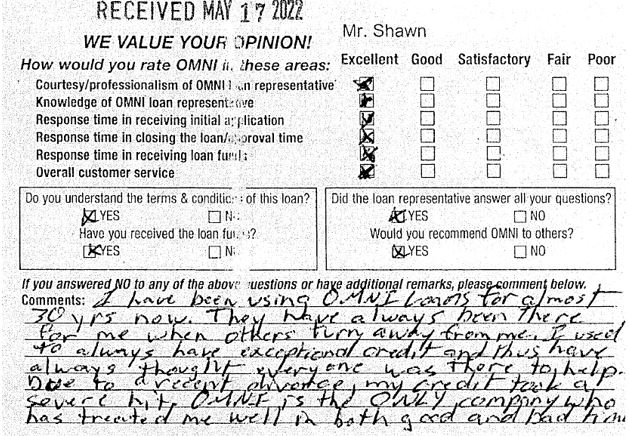 RECEIVED MAY 17 2022
WE VALUE YOUR OPINION!
Mr. Shawn
How would you rate OMNI in these areas: Excellent Good Satisfactory Fair Poor
Courtesy/professionalism of OMNI loan representative
Knowledge of OMNI loan representative
Response time in receiving initial application
Response time in closing the loan/approval time
Response time in receiving loan funds
Overall customer service
Do you understand the terms & conditions of this loan?
YES NO
Have you received the loan funds?
YES NO
Did the loan representative answer all your questions?
YES NO
Would you recommend OMNI to others?
YES NO
If you answered NO to any of the above questions or have additional remarks, please comment below.
Comments: I have been using OMNI Loans for almost
30 yrs now. They have always been there
for me when others turn away from me. I used
to always have exceptional credit and thus have
always thought everyone was there to help.
Due to a recent divorce, my credit took a
severe hit. OMNI is the ONLY company who
has treated me well in both good and bad time